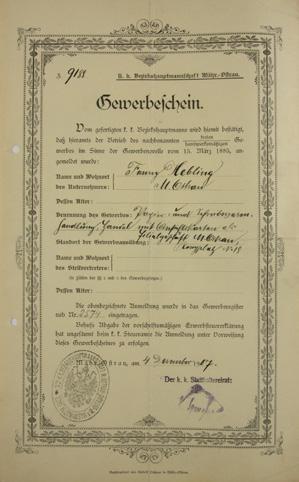 3. 9188
K. k. Bezirkshauptmannschaft Mähr.-Ostrau.
Gewerbeschein.
Vom gefertigten k. k. Bezirkshauptmanne wird hiemit bestätigt,
daß hieramts der Betrieb des nachbenannten freien handwerksmäßigen Ge-
werbes im Sinne der Gewerbenovelle vom 15. März 1883, an-
gemeldet wurde:
Name und Wohnort des Unternehmers: Fanny Hebling
M. Ostrau
Dessen Alter:
Benennung des Gewerbes: Papier- und
handlung, Handel mit Ansichtskarten
Standort der Gewerbeausübung: M. Ostrau
Name und Wohnort des Stellvertreters:
Dessen Alter:
Die obenbezeichnete Anmeldung wurde in das Gewerberegister
sub Nr. 2574 eingetragen.
Behufs Abgabe der vorschriftsmäßigen Gewerbsteuererklärung
hat ungesäumt beim k. k. Steueramte die Anmeldung unter Vorweisung
dieses Gewerbescheines zu erfolgen.
Mähr.-Ostrau, am 4 Dezember 07.
Der k. k. Statthaltereirat: